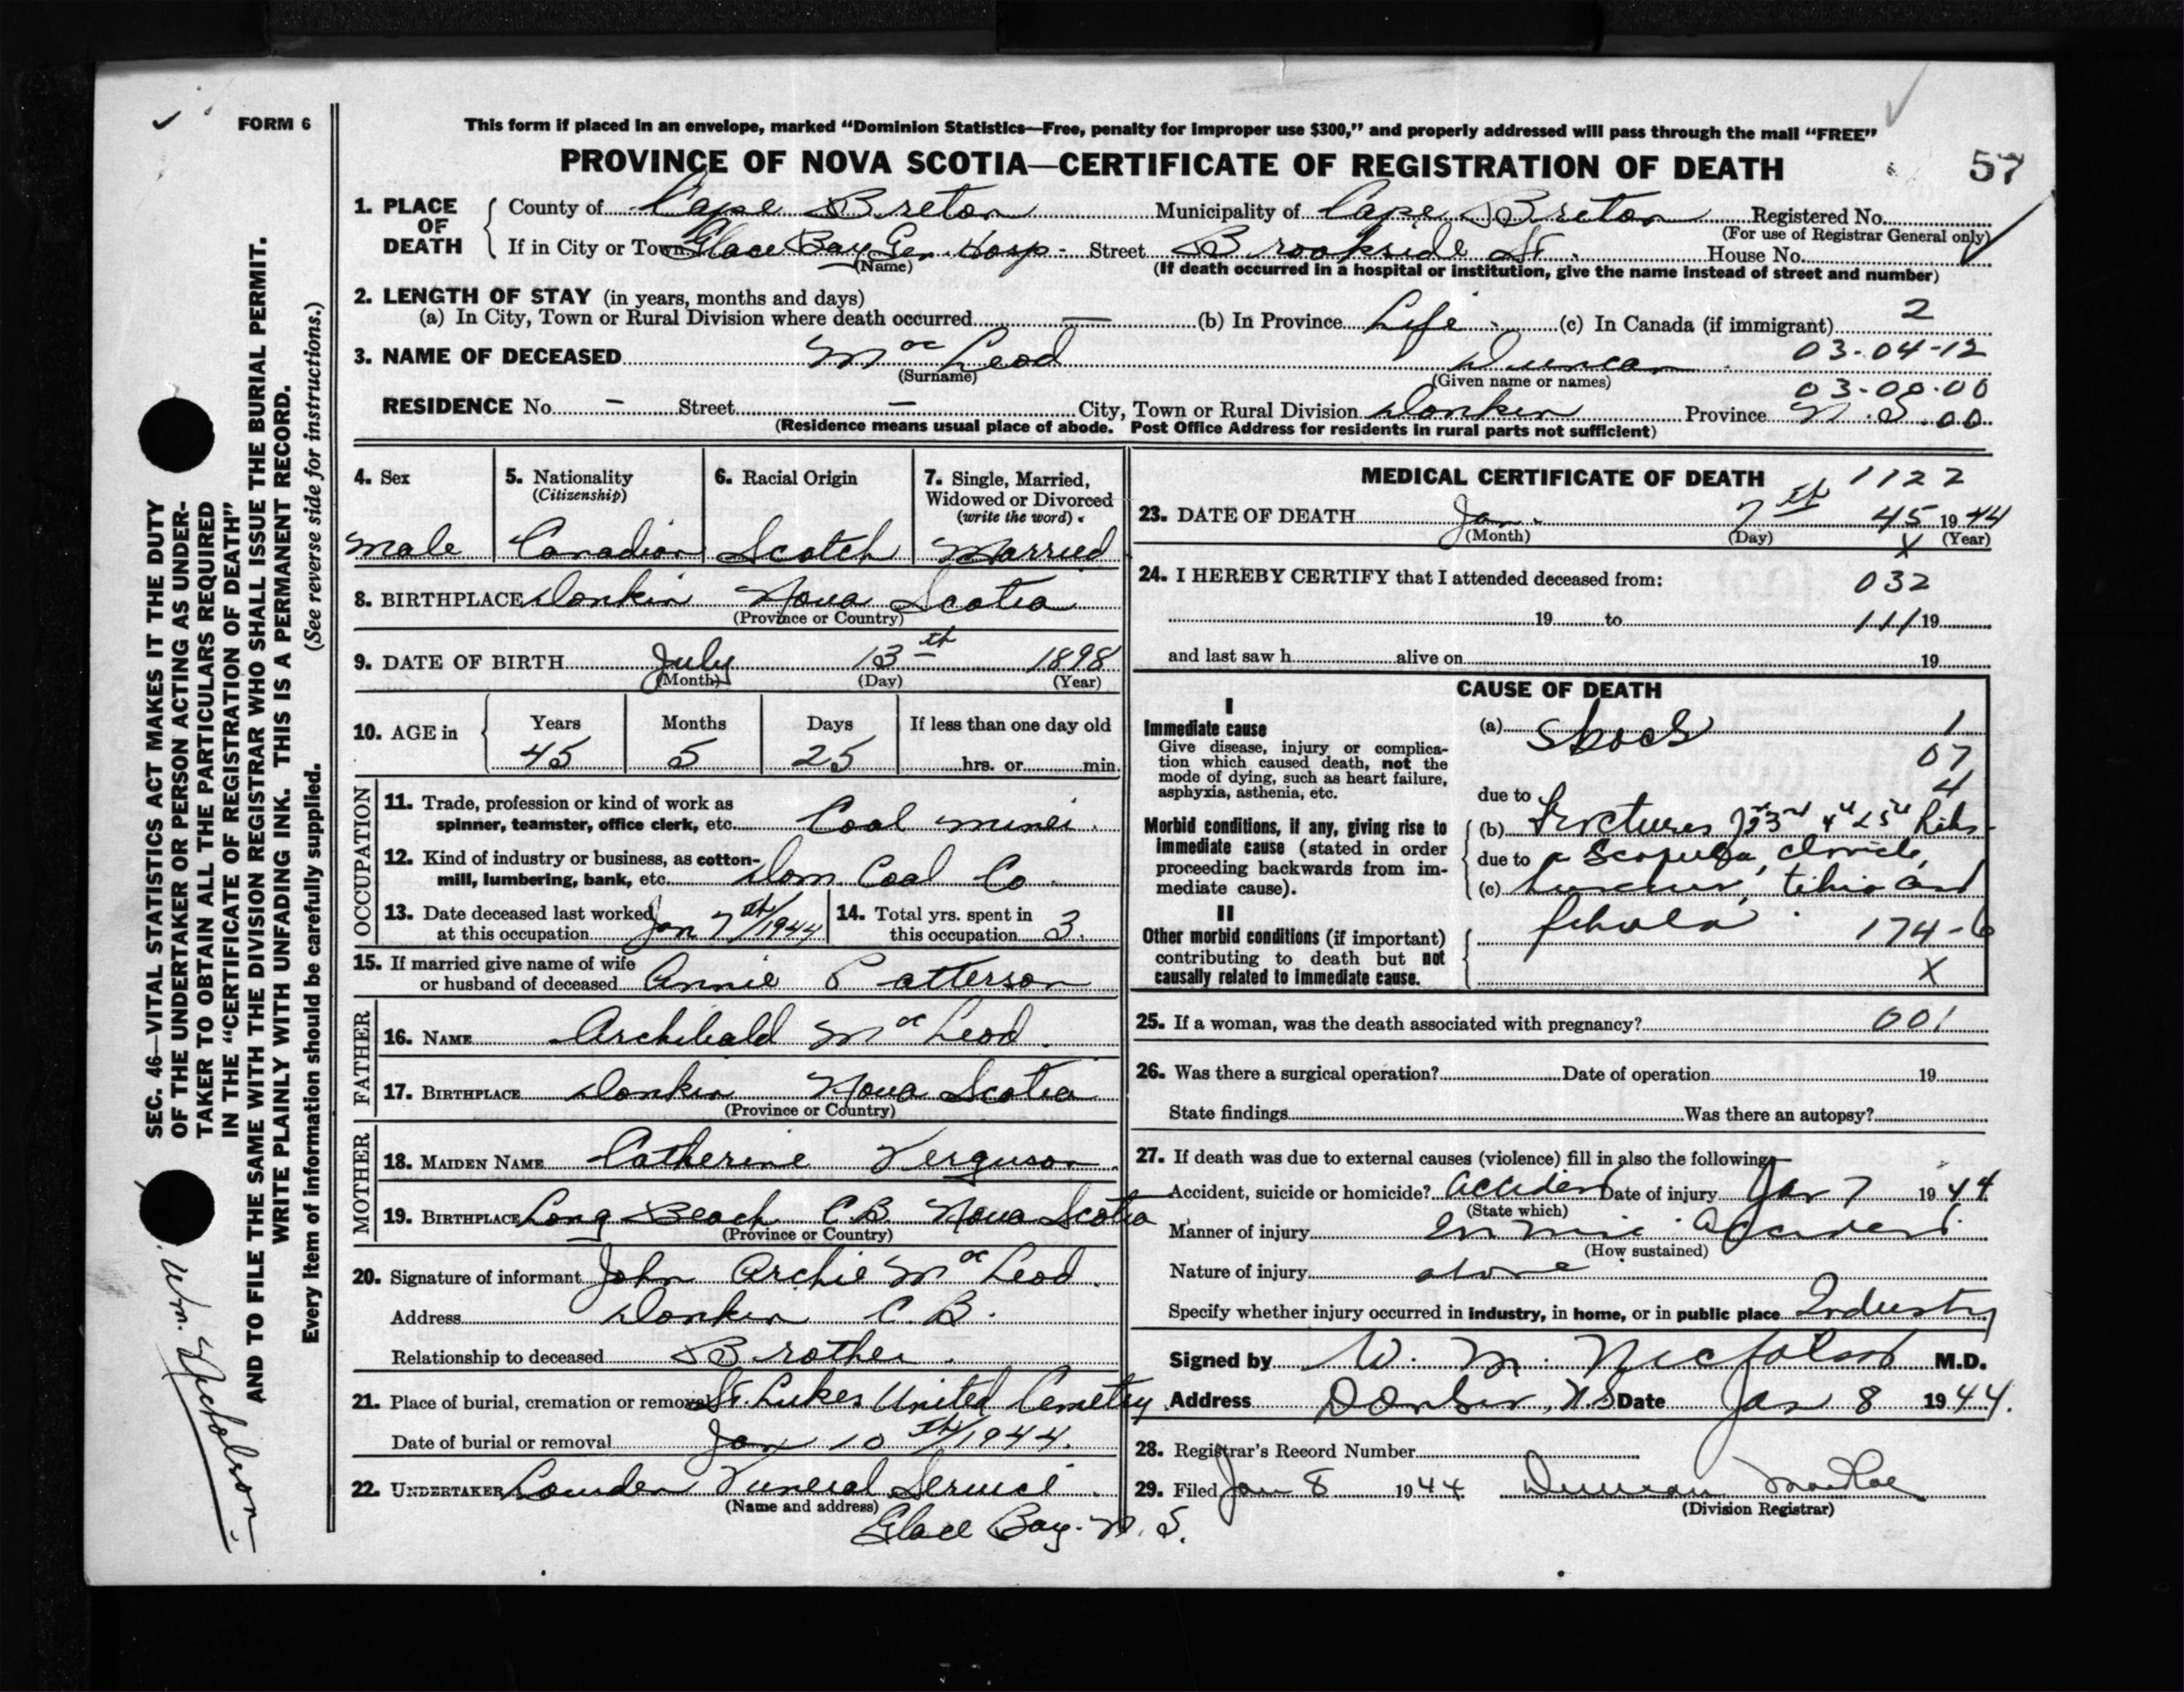 FORM 6
This form if placed in an envelope, marked “Dominion Statistics—Free, penalty for improper use $300,” and properly addressed will pass through the mail “FREE”
PROVINCE OF NOVA SCOTIA—CERTIFICATE OF REGISTRATION OF DEATH
57
1. PLACE OF DEATH
County of Cape Breton Municipality of Cape Breton Registered No.
(For use of Registrar General only)
If in City or Town Glace Bay Gen. Hosp - Street Brookside St. House No.
(Name) (If death occurred in a hospital or institution, give the name instead of street and number)
2. LENGTH OF STAY (in years, months and days)
(a) In City, Town or Rural Division where death occurred — (b) In Province Life (c) In Canada (if immigrant) 2
3. NAME OF DECEASED Mac Leod Duncan 03-04-12
(Surname) (Given name or names)
03-00-00
RESIDENCE No. – Street – City, Town or Rural Division Donkin Province N.S. 00
(Residence means usual place of abode. Post Office Address for residents in rural parts not sufficient)
4. Sex
Male
5. Nationality
(Citizenship)
Canadian
6. Racial Origin
Scotch
7. Single, Married, Widowed or Divorced
(write the word)
Married
8. BIRTHPLACE Donkin Nova Scotia
(Province or Country)
9. DATE OF BIRTH July 13th 1898
(Month) (Day) (Year)
10. AGE in Years Months Days If less than one day old
45 5 25 hrs. or min.
OCCUPATION
11. Trade, profession or kind of work as
spinner, teamster, office clerk, etc. Coal miner.
12. Kind of industry or business, as cotton-
mill, lumbering, bank, etc. Dom Coal Co.
13. Date deceased last worked
at this occupation Jan 7th/1944
14. Total yrs. spent in
this occupation 3.
15. If married give name of wife
or husband of deceased Annie Patterson
FATHER
16. NAME Archibald Mac Leod.
17. BIRTHPLACE Donkin Nova Scotia
(Province or Country)
MOTHER
18. MAIDEN NAME Catherine Ferguson.
19. BIRTHPLACE Long Beach C.B. Nova Scotia
(Province or Country)
20. Signature of informant John Archie Mac Leod.
Address Donkin C.B.
Relationship to deceased Brother.
21. Place of burial, cremation or removal St. Lukes United Cemetry
Date of burial or removal Jan 10th/1944.
22. UNDERTAKER Lowden Funeral Service.
(Name and address)
Glace Bay. N.S.
MEDICAL CERTIFICATE OF DEATH 1122
23. DATE OF DEATH Jan. 7th 45 1944
(Month) (Day) X (Year)
24. I HEREBY CERTIFY that I attended deceased from: 032
19 to 111 19
and last saw h alive on 19
CAUSE OF DEATH
I
Immediate cause
Give disease, injury or complica-
tion which caused death, not the
mode of dying, such as heart failure,
asphyxia, asthenia, etc.
(a) Shock 1
07
4
due to
Morbid conditions, if any, giving rise to
immediate cause (stated in order
proceeding backwards from im-
mediate cause).
(b) Fractures 3rd 4th & 5th Ribs
due to Scapula, clavicle,
(c) humerus, tibia and
fibula. 174-6
X
II
Other morbid conditions (if important)
contributing to death but not
causally related to immediate cause.
25. If a woman, was the death associated with pregnancy? 001
26. Was there a surgical operation? Date of operation 19
State findings Was there an autopsy?
27. If death was due to external causes (violence) fill in also the following:
Accident, suicide or homicide? Accident Date of injury Jan 7 1944
(State which)
Manner of injury In mine accident.
(How sustained)
Nature of injury above
Specify whether injury occurred in industry, in home, or in public place Industry
Signed by W. M. Nicholson M.D.
Address Donkin, N.S. Date Jan 8 1944.
28. Registrar's Record Number
29. Filed Jan 8 1944 Duncan MacRae
(Division Registrar)
SEC. 46—VITAL STATISTICS ACT MAKES IT THE DUTY
OF THE UNDERTAKER OR PERSON ACTING AS UNDER-
TAKER TO OBTAIN ALL THE PARTICULARS REQUIRED
IN THE “CERTIFICATE OF REGISTRATION OF DEATH”
AND TO FILE THE SAME WITH THE DIVISION REGISTRAR WHO SHALL ISSUE THE BURIAL PERMIT.
WRITE PLAINLY WITH UNFADING INK. THIS IS A PERMANENT RECORD.
Every item of information should be carefully supplied. (See reverse side for instructions.)
Wm. Nicholson